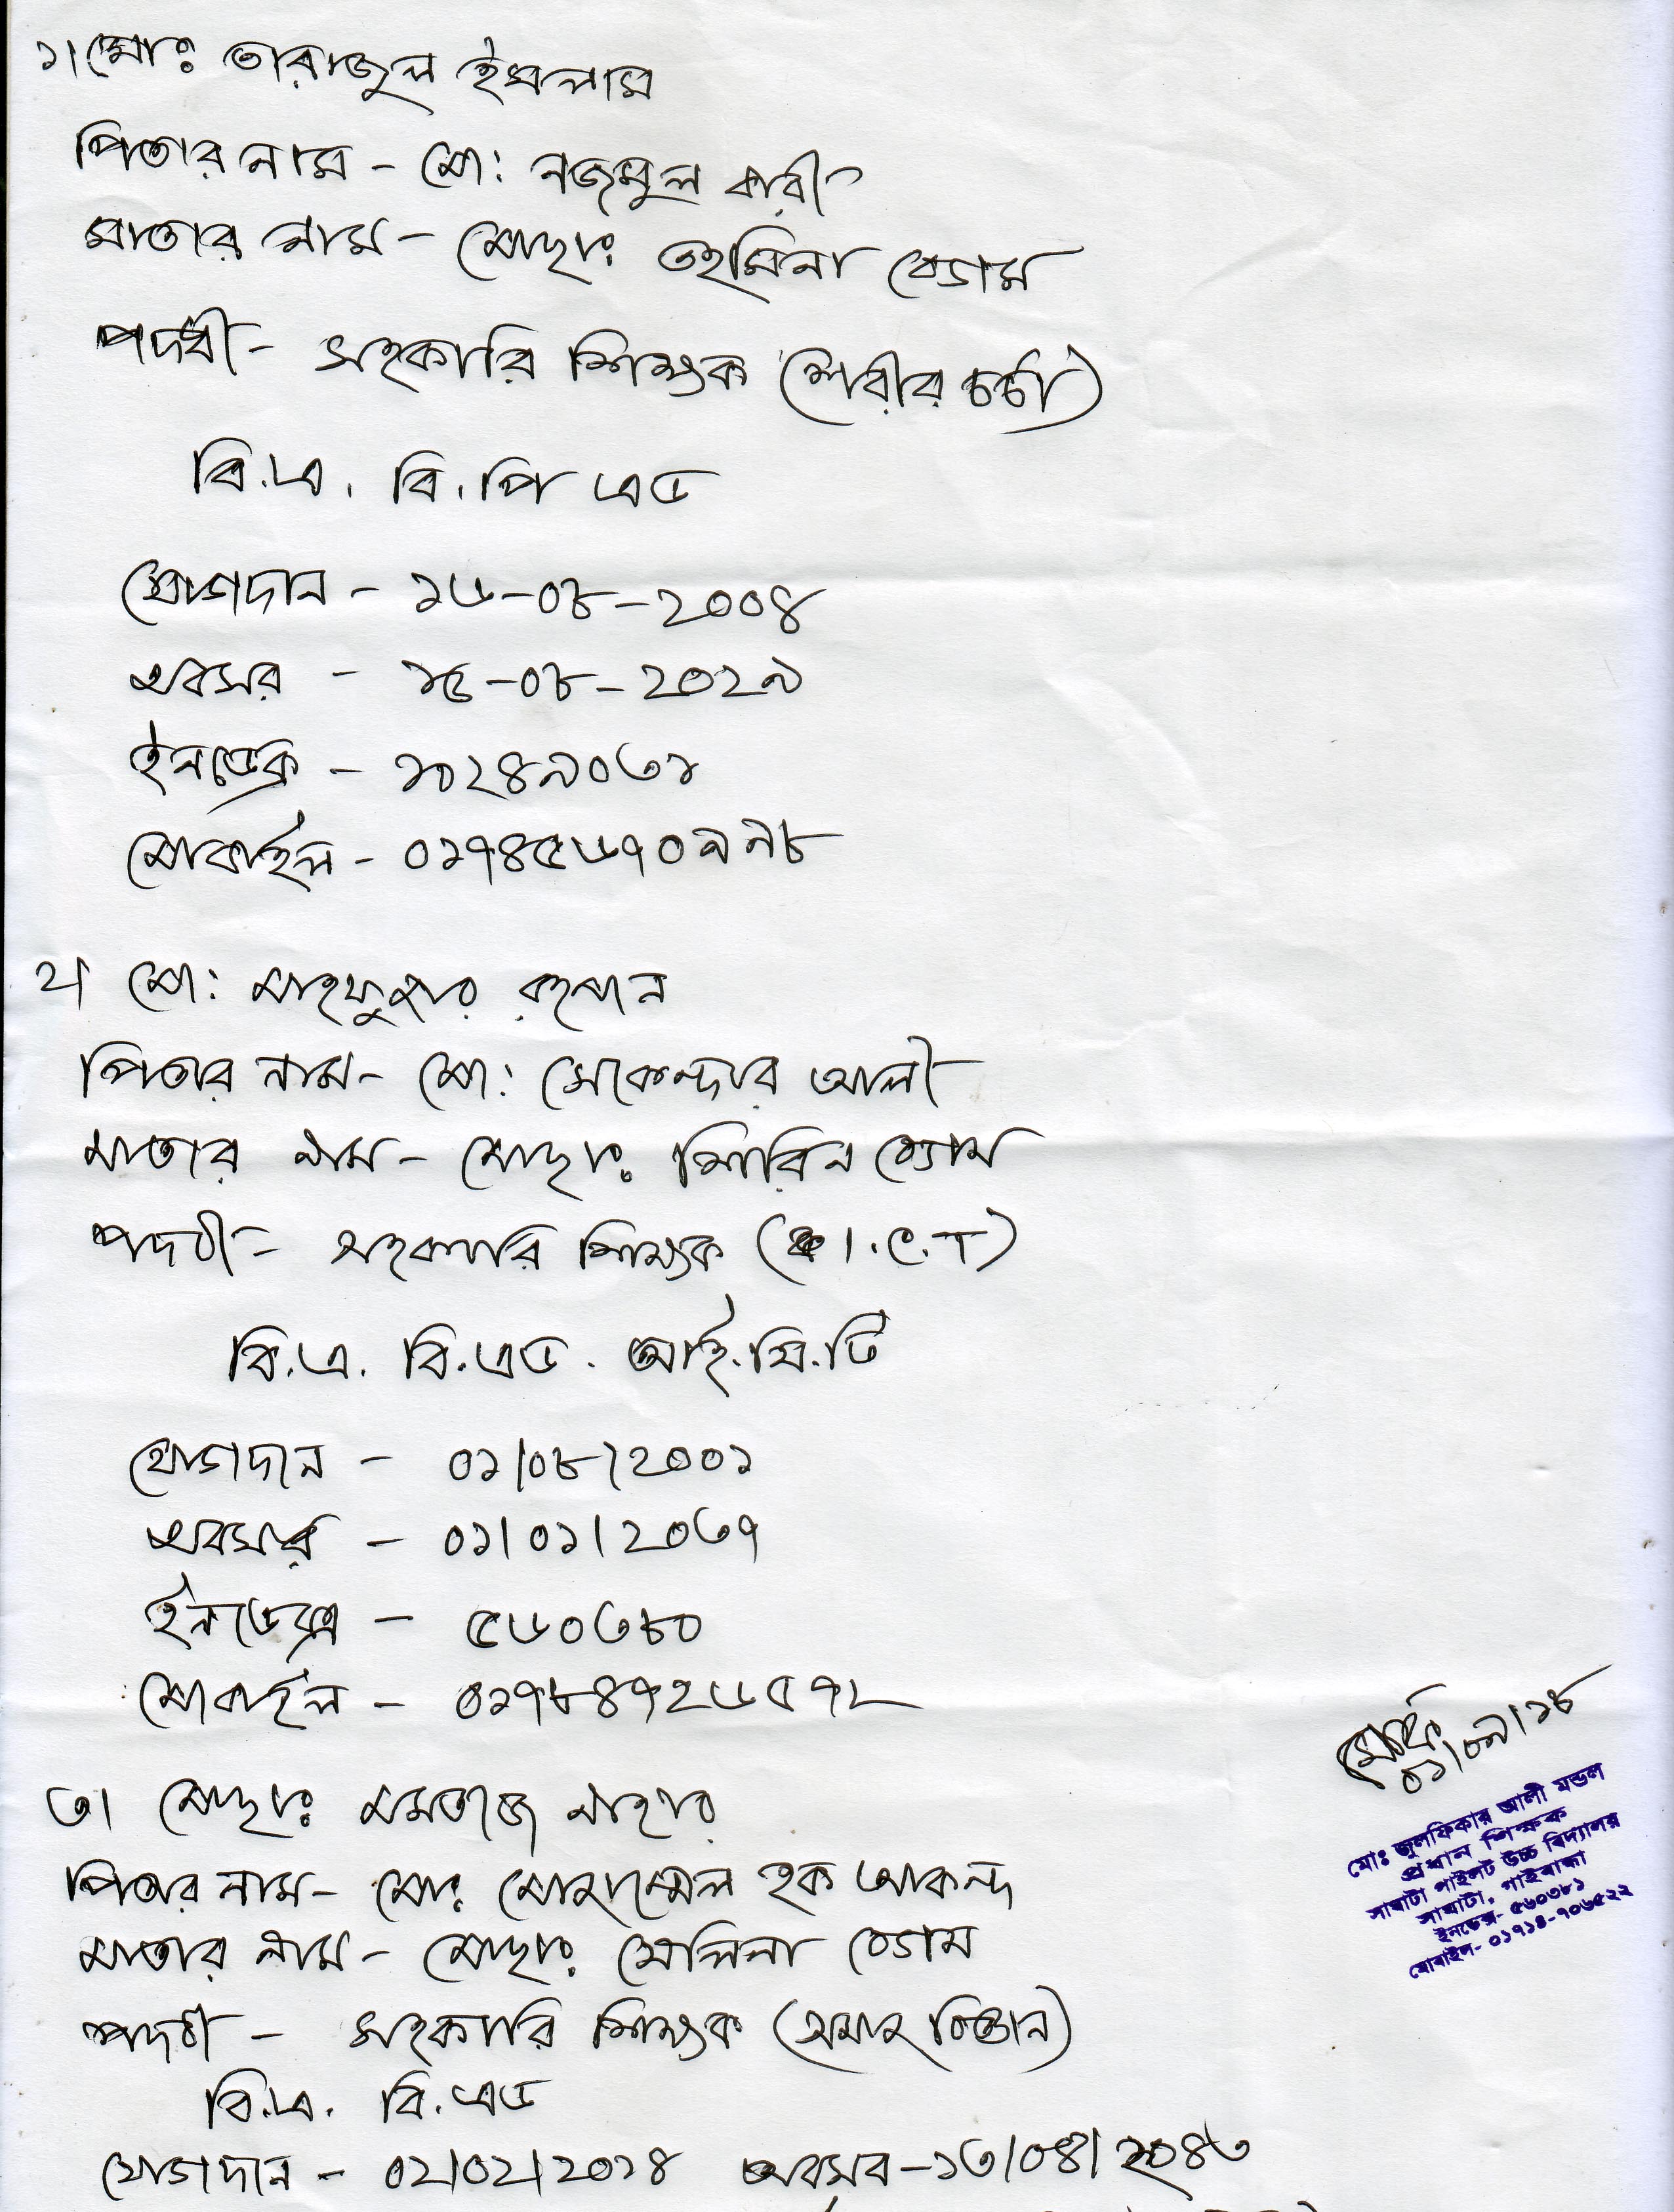 ১। মোঃ তারাজুল ইসলাম
পিতার নাম - মো: নজমুল বারী
মাতার নাম - মোছাঃ তহমিনা বেগম
পদবী - সহকারি শিক্ষক (শরীর চর্চা)
বি.এ. বি.পি এড
যোগদান - ১৬-০৮-২০০৪
অবসর - ১৫-০৮-২০২৯
ইনডেক্স - ১০২৪৯০৩১
মোবাইল - ০১৭৪৫৬৭০৯৯৮
২। মো: মাহফুজার রহমান
পিতার নাম - মো: সেকেন্দার আলী
মাতার নাম - মোছাঃ শিরিন বেগম
পদবী - সহকারি শিক্ষক (I.C.T)
বি.এ. বি.এড. আই.সি.টি
যোগদান - ০১/০৮/২০০১
অবসর - ০১/০১/২০৩৭
ইনডেক্স - ৫৬০৩৮০
মোবাইল - ০১৭৮৪৭২৬৫৭২
৩। মোছাঃ মমতাজ নাহার
পিতার নাম - মোঃ মোজাম্মেল হক আকন্দ
মাতার নাম - মোছাঃ সেলিনা বেগম
পদবী - সহকারি শিক্ষক (সমাজ বিজ্ঞান)
বি.এ. বি.এড
যোগদান - ০২/০২/২০১৪ অবসর - ১৩/০৪/২০৪৩
০১/০৯/১৮
মোঃ জুলফিকার আলী মন্ডল
প্রধান শিক্ষক
সাঘাটা পাইলট উচ্চ বিদ্যালয়
সাঘাটা, গাইবান্ধা
ইনডেক্স- ৫৬০৩৮১
মোবাইল- ০১৭১৪-৭০৬৫২২